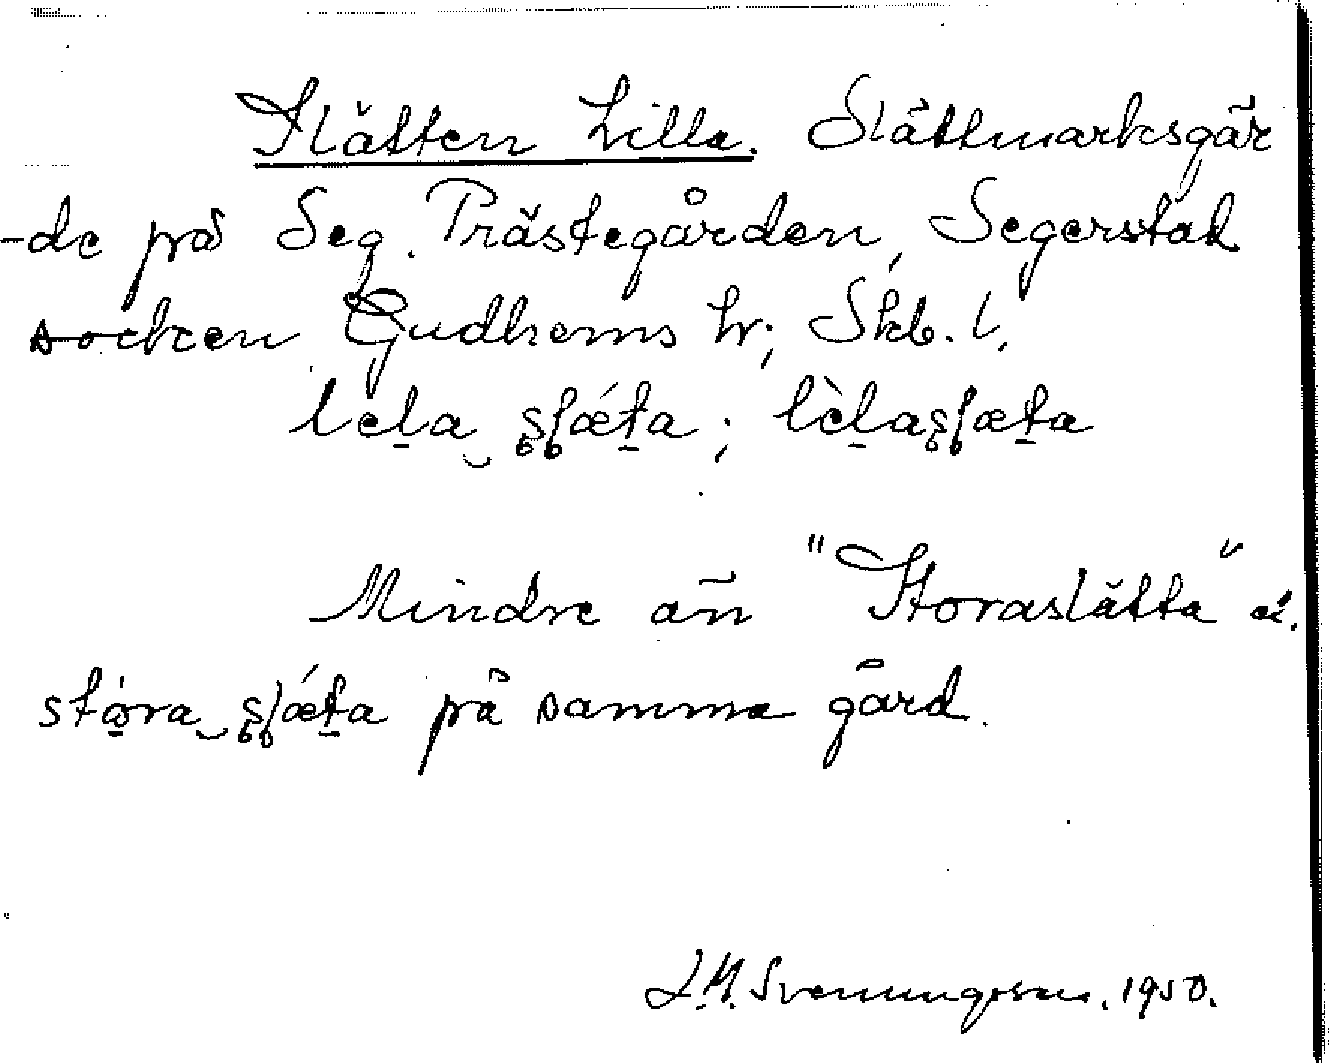 Slätten Lilla. Slättmarksgär
-de på Seg. Prästegården, Segerstad
socken Gudhems hr; Skb. l.
lela slæta; lèlaslæta
Mindre än "Storaslätta" el.
stora slæta på samma gård.
Svenungsson. 1950.